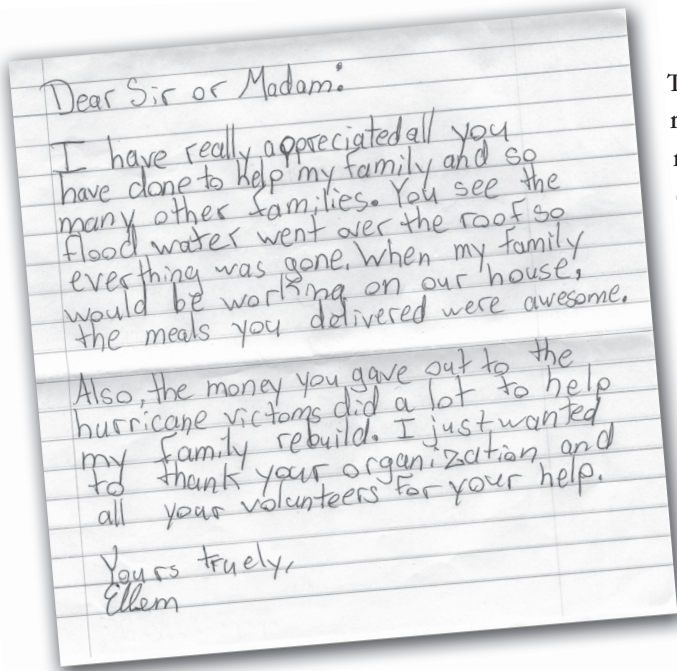 Dear Sir or Madam:
I have really appreciated all you
have done to help my family and so
many other families. You see the
flood water went over the roof so
everthing was gone. When my family
would be working on our house,
the meals you delivered were awesome.
Also, the money you gave out to the
hurricane victoms did a lot to help
my family rebuild. I just wanted
to thank your organization and
all your volunteers for your help.
Yours truely,
Ellem